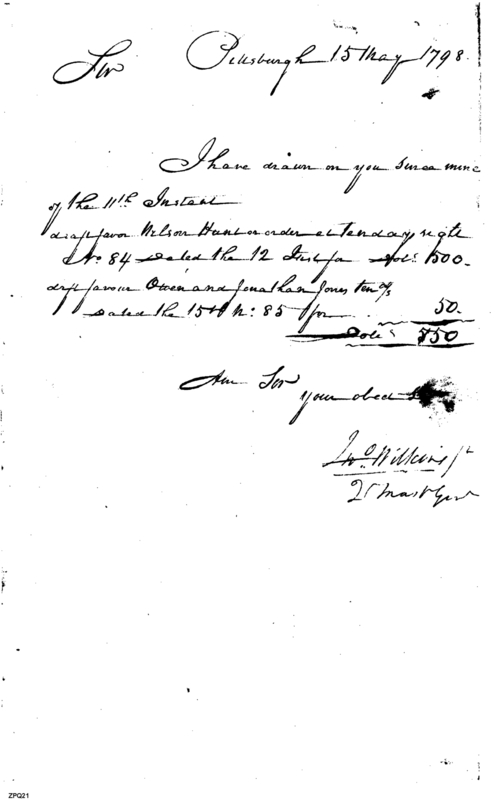 Pittsburgh 15 May 1798
Sir
I have drawn on you since mine
of the 11th Instant
draft favor Wilson Hunt or order at ten days sight
No. 84 Dated the 12 Inst for Dols. 500.
dft favour Owen and Jonathan Jones ten d/s
Dated the 15th N: 85 for 50.
Dols 550
Am Sir
your obed
Jno Wilkins Jr
Qr Mastr Genl
ZPG21